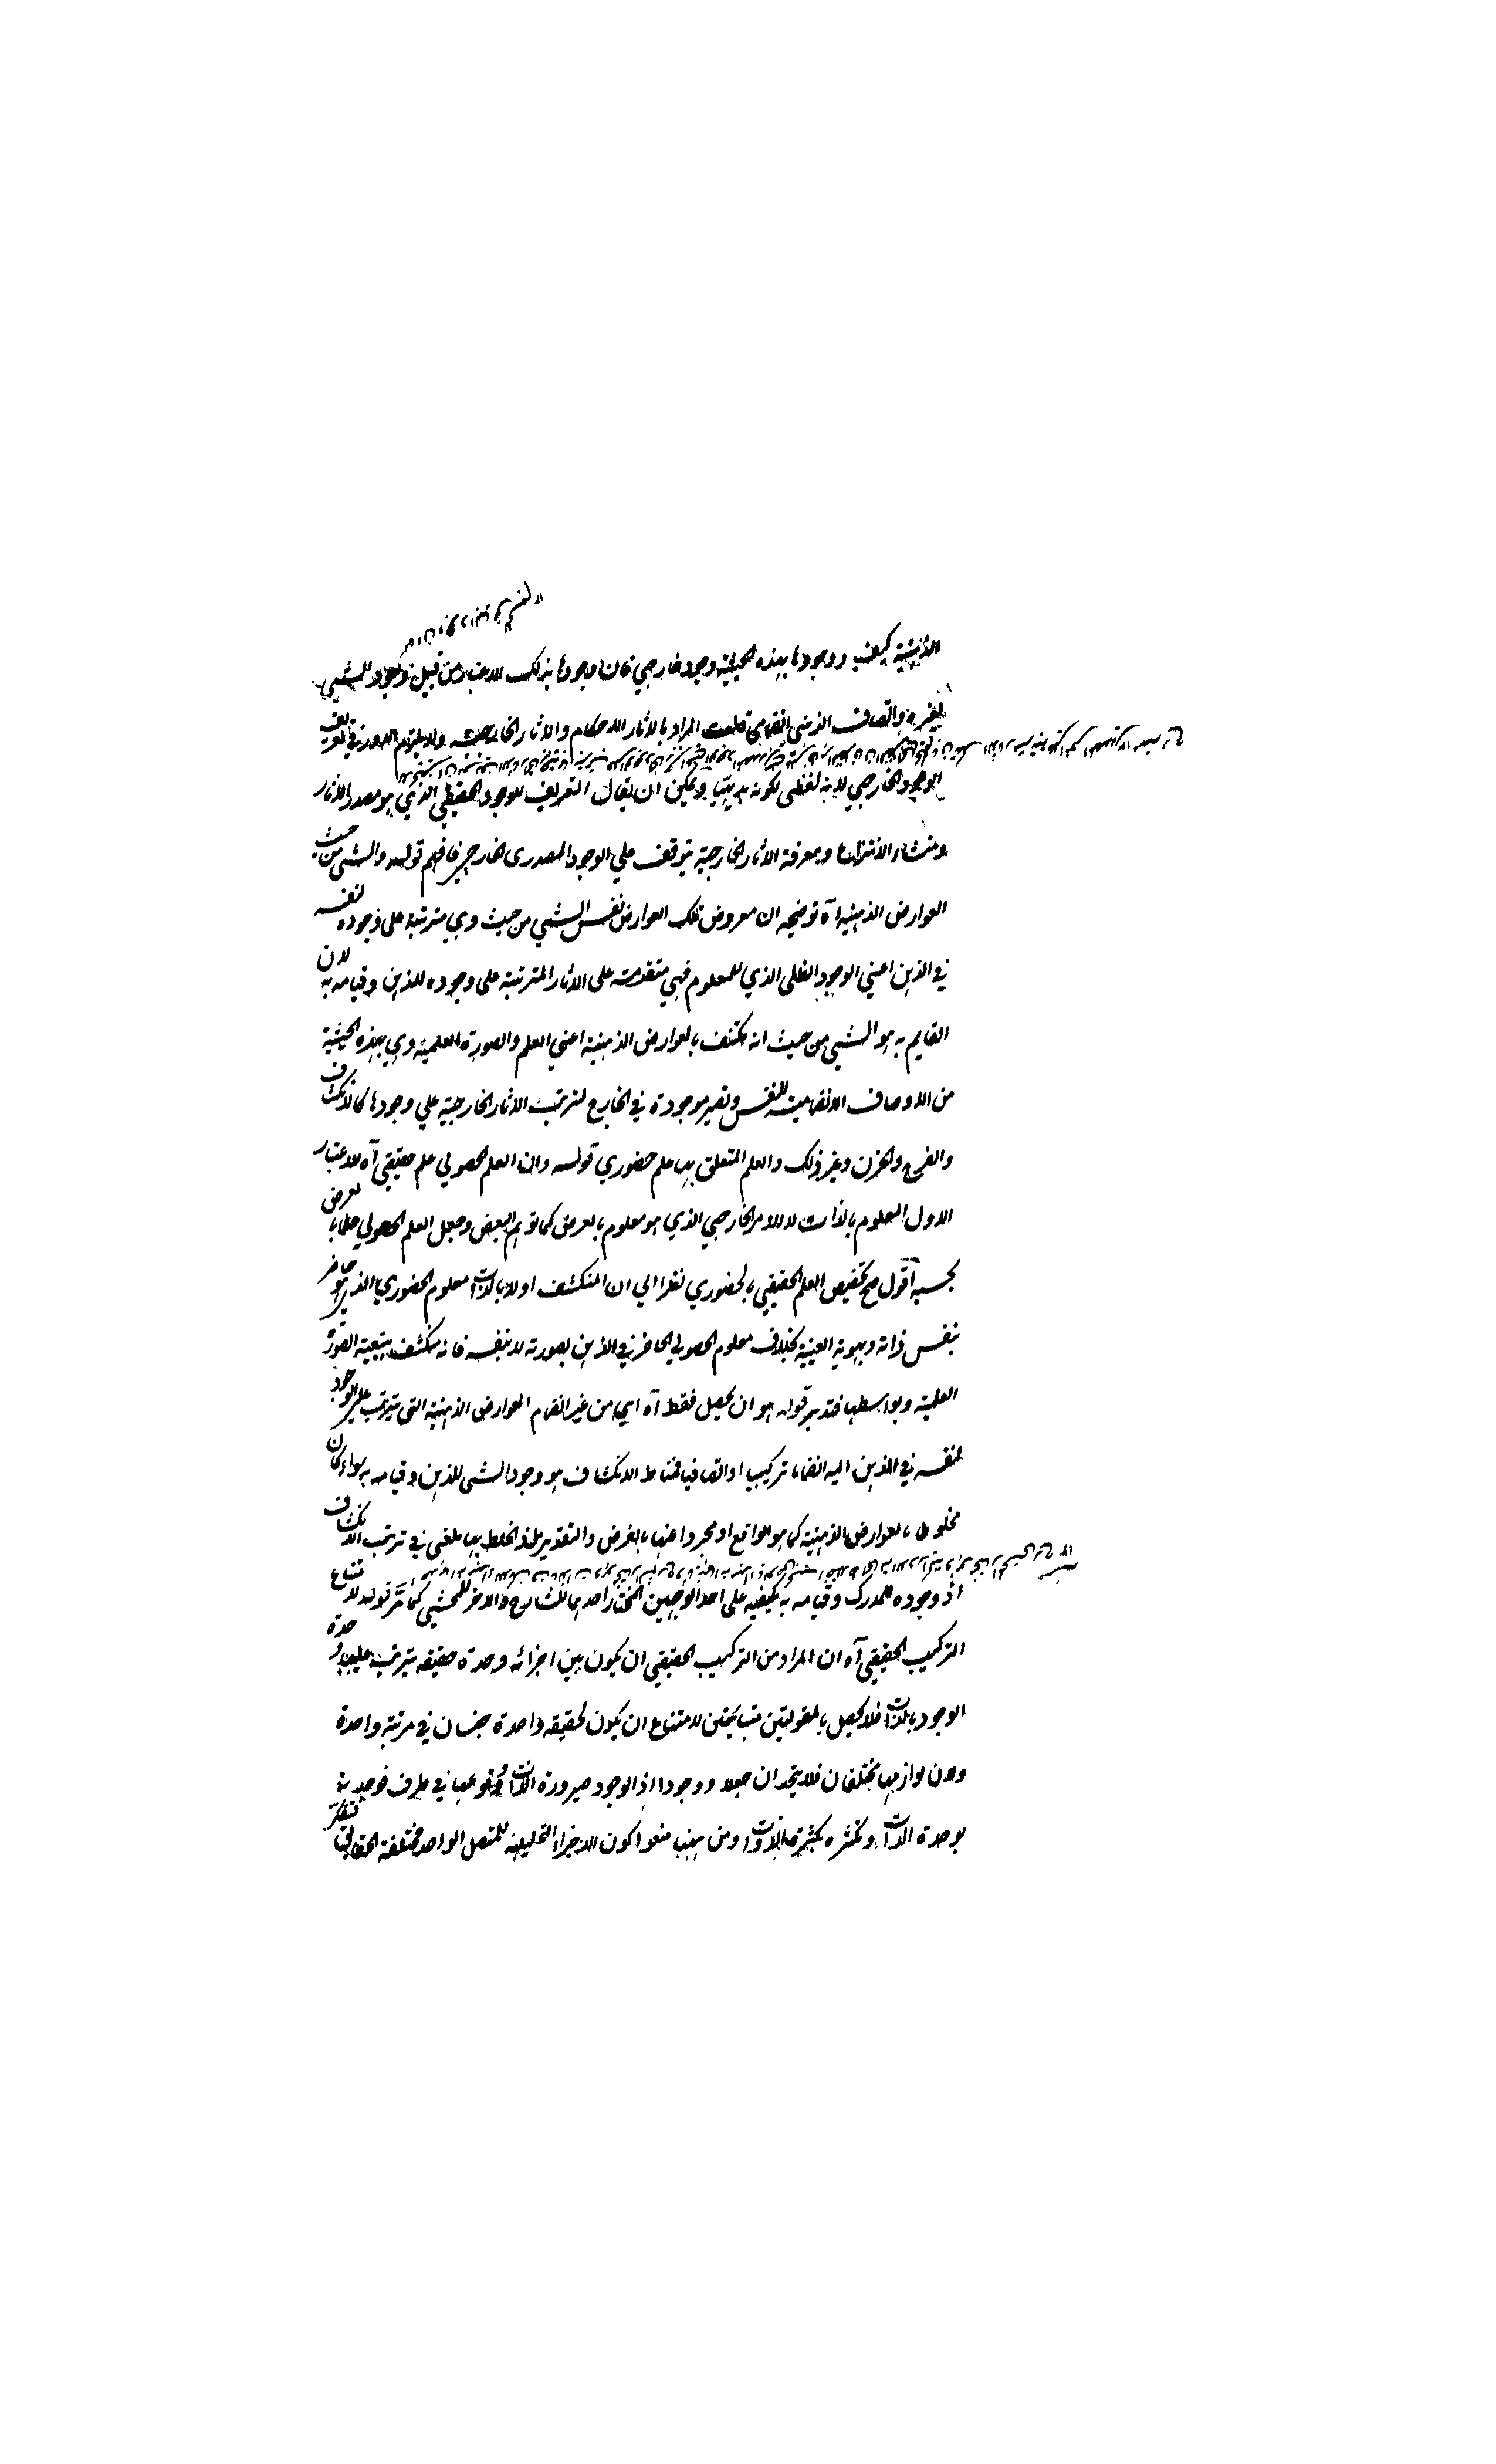 الذهنية كيف ووجودها بهذه الحيثية وجود خارجي فان وجودها بذلك الاعتبار من قبيل وجود الشيء
لغيره واتصاف الذهن انضمامي قلت المراد بالاثار الاحكام والاثار الخارجية ولا يلزم الدور في تعريف
الوجود الخارجي لانه لفظي لكونه بديهيا ويمكن ان يقال التعريف للوجود الحقيقي الذي هو مصدر الاثار
ومنشاء الانتزاع ومعرفة الاثار الخارجية يتوقف علي الوجود المصدري الخارجي فافهم قوله والشي من حيث
العوارض الذهنية آه توضيحه ان معروض تلك العوارض نفس الشي من حيث وهي مترتبة على وجوده لنفسه
في الذهن اعني الوجود الظلي الذي للمعلوم فهي متقدمة على الاثار المترتبة على وجوده للذهن وقيامه به لان
القايم به هو الشي من حيث انه مكتنف بالعوارض الذهنية اعني العلم والصورة العلمية وهي بهذه الحيثية
من الاوصاف الانضمامية للنفس وتصير موجودة في الخارج لترتب الاثار الخارجية علي وجودها كالانكشاف
والفرح والحزن وغير ذلك والعلم المتعلق بها علم حضوري قوله وان العلم الحصولي علم حقيقي آه للاعتبار
الاول المعلوم بالذات لا للامر الخارجي الذي هو معلوم بالعرض كما توهم البعض وجعل العلم الحصولي علما بالعرض
بحسبه اقول صح تخصيص العلم الحقيقي بالحضوري نظرا الي ان المنكشف اولا بالذات معلوم الحضوري الذي هو حاضر
بنفس ذاته وهويته العينية بخلاف معلوم الحصولي الحاضر في الذهن بصورته لا بنفسه فانه منكشف بتبعية الصورة
العلمية وبواسطتها فتدبر قوله هو ان يحصل فقط آه اي من غير انضمام العوارض الذهنية التي تترتب علي الوجود
لنفسه في الذهن اليه انضماما تركيبيا او اتصافيا فمناط الانكشاف هو وجود الشي للذهن وقيامه به سواء كان
مخلوطا بالعوارض الذهنية كما هو الواقع او مجردا عنها بالفرض والتقدير فاذا الخلط بها ملغى في ترتب الانكشاف
اذ وجوده للمدرك وقيامه به يكفيه على احد الوجهين المختار احدهما للشارح والاخر للمحشي كما مر قوله لامتناع
التركيب الحقيقي آه ان المراد من التركيب الحقيقي ان يكون بين اجزائه وحدة حقيقه يترتب عليها وحدة
الوجود بالذات فلا يحصل بالمقولتين متباينتين لامتناع ان يكون لحقيقه واحدة جنسان في مرتبة واحدة
ولان لوازمها مختلفان فلا يتحدان جعلا ووجودا اذ الوجود صيرورة الذات ووقوعها في ظرف فوحدته
بوحدة الذات وتكثره بتكثر الذوات ومن ههنا منعوا كون الاجزاء التحليلية للمتصل الواحد مختلفة الحقايق فتفكر